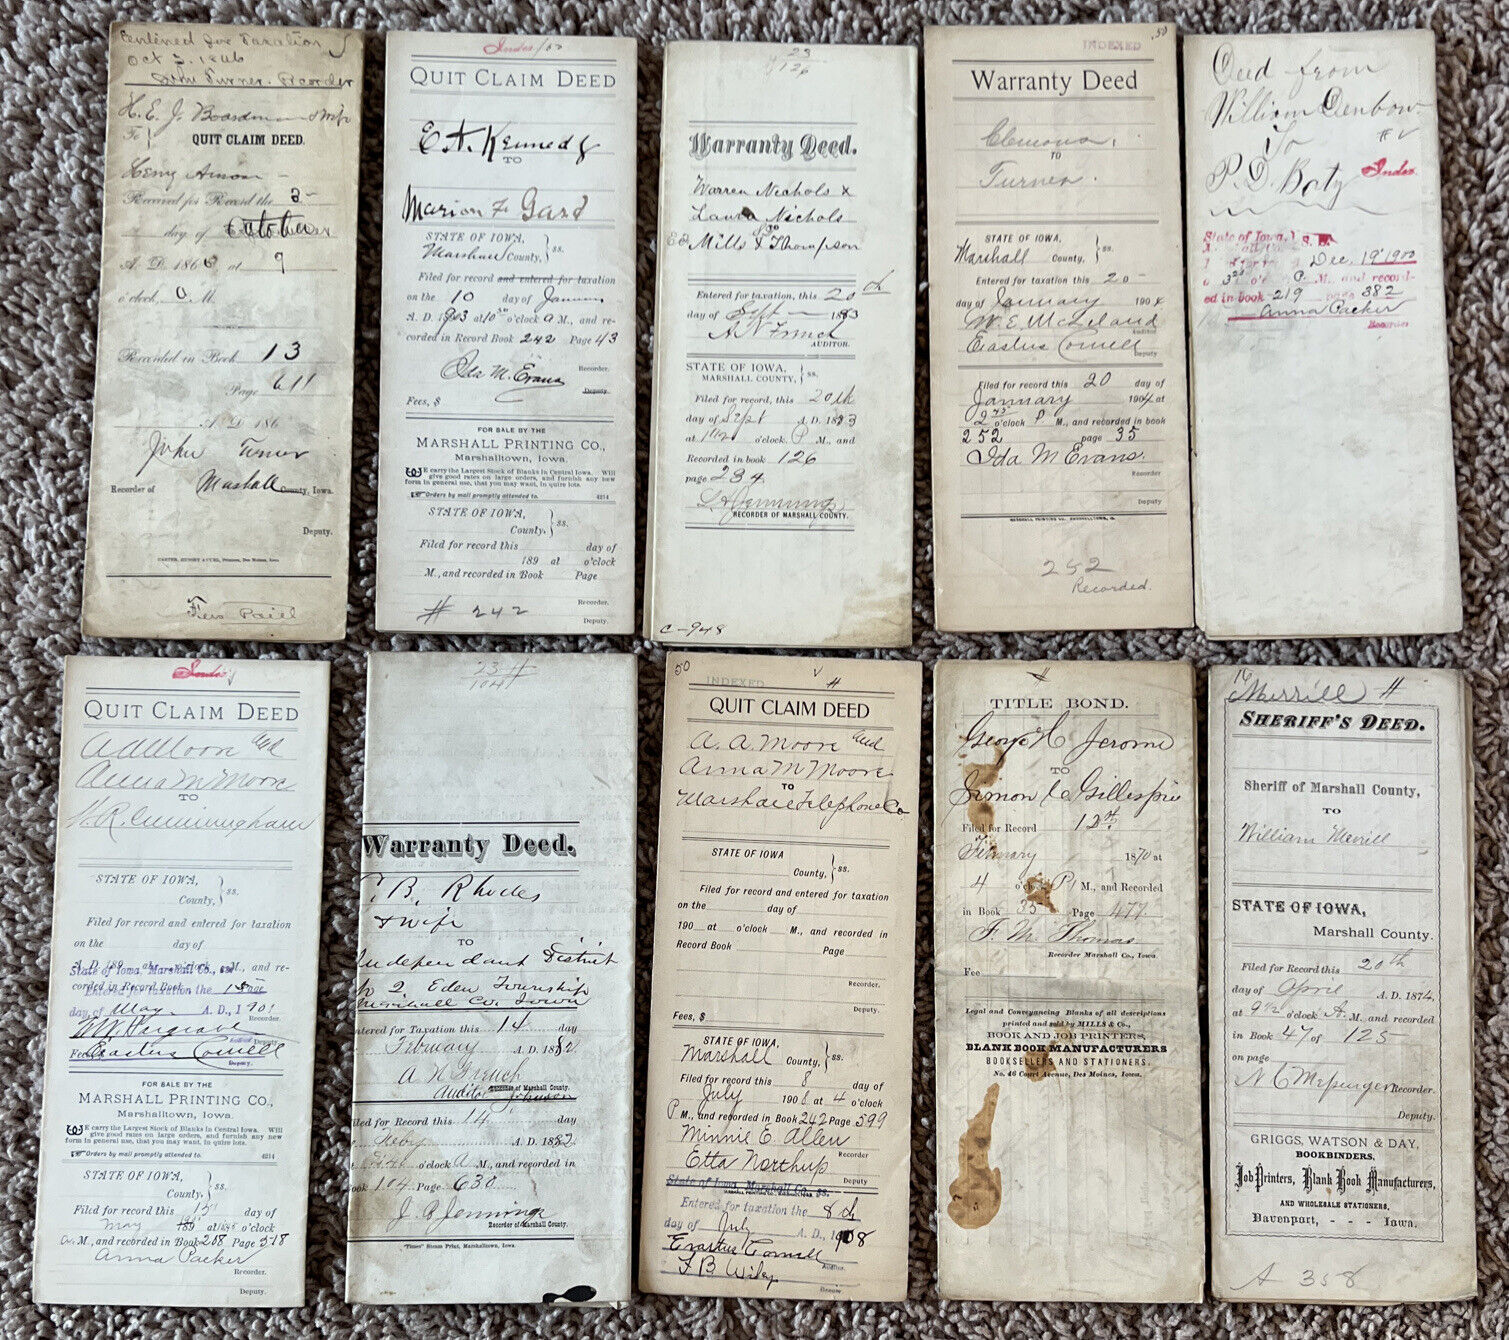 Oct 3. 1866
John Turner. Recorder
H. E. J. Boardman & Wife
To
QUIT CLAIM DEED.
Received for Record the 3
day of October
A. D. 1866 at 9
o'clock M.
Recorded in Book 13
Page 611
A. D. 186
John Turner
Recorder of Marshall County, Iowa.
Deputy.
Fees Paid
Index
QUIT CLAIM DEED
E. A. Kennedy
TO
Marion F. Gard
STATE OF IOWA,
Marshall County, ss.
Filed for record and entered for taxation
on the 10 day of
A. D. 1903 at 10 30 o'clock A M., and re-
corded in Record Book 242 Page 43
Ida M. Evans
Recorder.
Deputy.
Fees, $
FOR SALE BY THE
MARSHALL PRINTING CO.,
Marshalltown, Iowa.
WE carry the Largest Stock of Blanks in Central Iowa. Will
give good rates on large orders, and furnish any new
form in general use, that you may want, in quire lots.
Orders by mail promptly attended to. 4214
STATE OF IOWA,
County. ss.
Filed for record this day of
189 at o'clock
M., and recorded in Book Page
Recorder.
# 242
Deputy.
23
126
Warranty Deed.
Warren Nichols &
Laura Nichols
TO
Mills & Thompson
Entered for taxation, this 20th
day of Sept 1883
AUDITOR.
STATE OF IOWA,
MARSHALL COUNTY, ss.
Filed for record, this 20th
day of Sept A. D. 1883
at o'clock, P M., and
Recorded in book 126
page 234
RECORDER OF MARSHALL COUNTY.
C-948
INDEXED .50
Warranty Deed
Clemons.
TO
Turner.
STATE OF IOWA,
Marshall County, ss.
Entered for taxation this 20
day of January 1904
W. E. McLeland
Auditor
Erastus Connell
Deputy
Filed for record this 20 day of
January 1904 at
2 45 o'clock P M., and recorded in book
252 page 35
Ida M Evans.
Recorder
Deputy
MARSHALL PRINTING CO., MARSHALLTOWN, IA.
252
Recorded.
Deed from
William Denbow
To #
P. D. Baty Index.
State of Iowa,
Dec. 19 1900
P. M., and record-
ed in book 219 page 382
Anna Packer
Recorder
QUIT CLAIM DEED
Anna M Moore
TO
Cunningham
STATE OF IOWA,
County, ss.
Filed for record and entered for taxation
on the day of
A. D. 189 at o'clock M., and re-
corded in Record Book Page
State of Iowa, Marshall Co., ss.
Entered for taxation the 15
day of May A. D., 1901
Recorder.
Erastus Connell
Deputy.
FOR SALE BY THE
MARSHALL PRINTING CO.,
Marshalltown, Iowa.
WE carry the Largest Stock of Blanks in Central Iowa. Will
give good rates on large orders, and furnish any new
form in general use, that you may want, in quire lots.
Orders by mail promptly attended to. 4214
STATE OF IOWA,
County. ss.
Filed for record this 15 day of
May 189 at o'clock
A. M., and recorded in Book 208 Page 518
Anna Packer
Recorder.
Deputy.
23 #
104
Warranty Deed.
B. Rhodes
& wife
TO
Independent District
No 2 Eden Township
Marshall Co. Iowa
Entered for Taxation this 14 day
February A. D. 1882
Auditor of Marshall County.
Filed for Record this 14 day
Feby A. D. 1882
o'clock A M., and recorded in
Book 104 Page 630
Recorder of Marshall County.
"Times" Steam Print, Marshalltown, Iowa.
50 INDEXED #
QUIT CLAIM DEED
A. A. Moore and
Anna M Moore
TO
Marshall Telephone Co
STATE OF IOWA
County, ss.
Filed for record and entered for taxation
on the day of
190 at o'clock M., and recorded in
Record Book Page
Recorder.
Deputy.
Fees, $
STATE OF IOWA,
Marshall County, ss.
Filed for record this 8 day of
July 1908 at 4 o'clock
P M., and recorded in Book 242 Page 599
Minnie E. Allen
Recorder
Etta Northup
Deputy
State of Iowa, Marshall Co. ss.
Entered for taxation the 8th
day of July A. D., 1908
Erastus Connell
Auditor.
F. B. Wiley
#
TITLE BOND.
George H Jerome
TO
Simon C Gillespie
Filed for Record 12th
February 1870 at
4 o'clock P M., and Recorded
in Book 35 Page 477
F. M. Thomas
Recorder Marshall Co., Iowa.
Fee
Legal and Conveyancing Blanks of all descriptions
printed and sold by MILLS & Co.,
BOOK AND JOB PRINTERS,
BLANK BOOK MANUFACTURERS
BOOKSELLERS AND STATIONERS,
No. 46 Court Avenue, Des Moines, Iowa.
16
Merrill #
SHERIFF'S DEED.
Sheriff of Marshall County,
TO
William Merrill
STATE OF IOWA,
Marshall County.
Filed for Record this 20th
day of April A. D. 1874,
at o'clock A. M. and recorded
in Book 47 of 125
on page
Recorder.
Deputy.
GRIGGS, WATSON & DAY,
BOOKBINDERS,
Job Printers, Blank Book Manufacturers,
AND WHOLESALE STATIONERS,
Davenport, - - - Iowa.
A 358